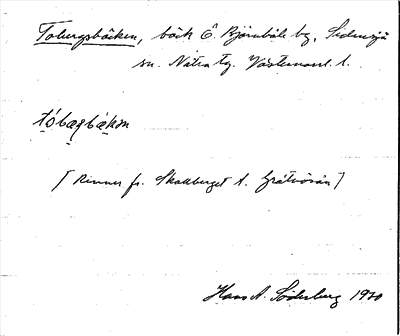 Tobergsbäcken, bäck Ö. Björnböle by, Sidensjö
sn. Nätra tg. Västernorrl. l.
tóbærbækən
[Rinner fr. Skallberget t. Gråtvörån]
Hans A. Söderberg 1930